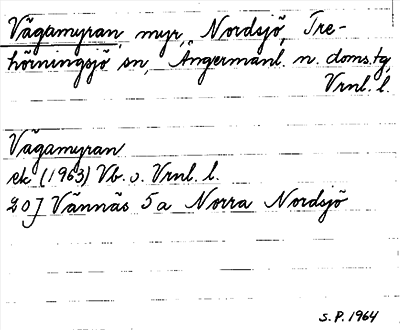 Vägamyran, myr, Nordsjö, Tre-
hörningsjö sn, Ångermanl. n. doms.tg,
Vrnl. l.
Vägamyran
ek (1963) Vb. o. Vrnl. l.
20J Vännäs 5a Norra Nordsjö
S.P. 1964